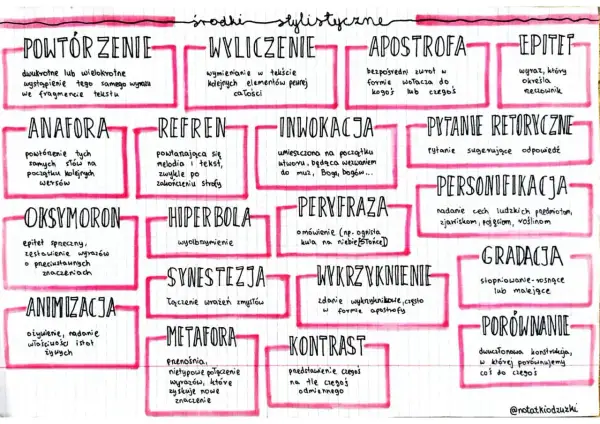 środki stylistyczne
POWTÓRZENIE
dwukrotne lub wielokrotne
wystąpienie tego samego wyrazu
we fragmencie tekstu
WYLICZENIE
wymienianie w tekście
kolejnych elementów pewnej
całości
APOSTROFA
bezpośredni zwrot w
formie wołacza do
kogoś lub czegoś
EPITET
wyraz, który
określa
rzeczownik
ANAFORA
powtórzenie tych
samych słów na
początku kolejnych
wersów
REFREN
powtarzająca się
melodia i tekst,
zwykle po
zakończeniu strofy
INWOKACJA
umieszczona na początku
utworu, będąca wezwaniem
do muz, Boga, bogów...
PYTANIE RETORYCZNE
pytanie sugerujące odpowiedź
OKSYMORON
epitet sprzeczny,
zestawienie wyrazów
o przeciwstawnych
znaczeniach
HIPERBOLA
wyolbrzymienie
PERYFRAZA
omówienie (np. ognista
kula na niebie[słońce])
PERSONIFIKACJA
nadanie cech ludzkich przedmiotom,
zjawiskom, pojęciom, roślinom
SYNESTEZJA
łączenie wrażeń zmysłów
WYKRZYKNIENIE
zdanie wykrzyknikowe, często
w formie apostrofy
GRADACJA
stopniowanie-rosnące
lub malejące
ANIMIZACJA
ożywienie, nadanie
właściwości istot
żywych
METAFORA
przenośnia,
nietypowe połączenie
wyrazów, które
zyskuje nowe
znaczenie
KONTRAST
przedstawienie czegoś
na tle czegoś
odmiennego
PORÓWNANIE
dwuczłonowa konstrukcja,
w której porównujemy
coś do czegoś
@notatkiodzuzki